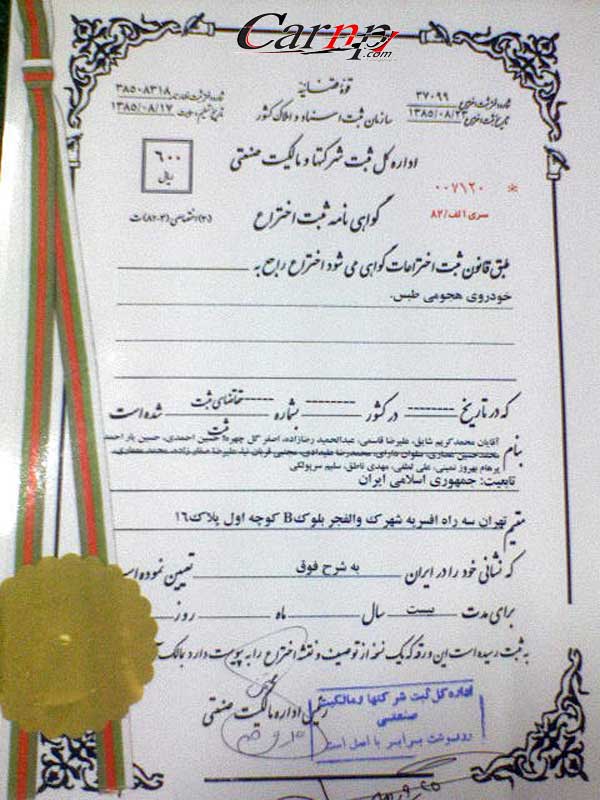 Carnp.com
قوه قضائیه
سازمان ثبت اسناد و املاک کشور
شماره دفتر ثبت اختراع ۳۷۰۹۹
تاریخ ثبت اختراع ۱۳۸۵/۰۸/۲۳
۳۸۵۰۸۳۱۸
۱۳۸۵/۰۸/۱۷
اداره کل ثبت شرکتها و مالکیت صنعتی
۶۰۰
ریال
۰۰۷۱۲۰ *
سری ۱ الف/۸۲
گواهی نامه ثبت اختراع
(۳) اختصاصی (۳-۸۲) ث
طبق قانون ثبت اختراعات گواهی می شود اختراع راجع به
خودروی هجومی طبس.
که در تاریخ -------- در کشور -------- بشماره -------- تقاضای ثبت شده است
ثبت
بنام آقایان محمدکریم شایق، علیرضا قاسمی، عبدالحمید رضازاده، اصغر گل چهره، حسین احمدی، حسین یار احمدی
محمدحسین معماری، سلوان دارای، محمدرضا علیمدادی، مجتبی قربان نیا، علیرضا صفارزاده، محمد معماری،
پرهام بهروز نمینی، علی لطفی، مهدی ناطق، سلیم سرپولکی
تابعیت: جمهوری اسلامی ایران
مقیم تهران سه راه افسریه شهرک والفجر بلوکB کوچه اول پلاک۱۶
که نشانی خود را در ایران به شرح فوق تعیین نموده است
برای مدت بیست سال ماه روز
به ثبت رسیده است این ورقه که یک نسخه از توصیف و نقشه اختراع را به پیوست دارد بمالک
رئیس اداره مالکیت صنعتی
اداره کل ثبت شرکتها و مالکیت
صنعتی
رونوشت برابر با اصل است